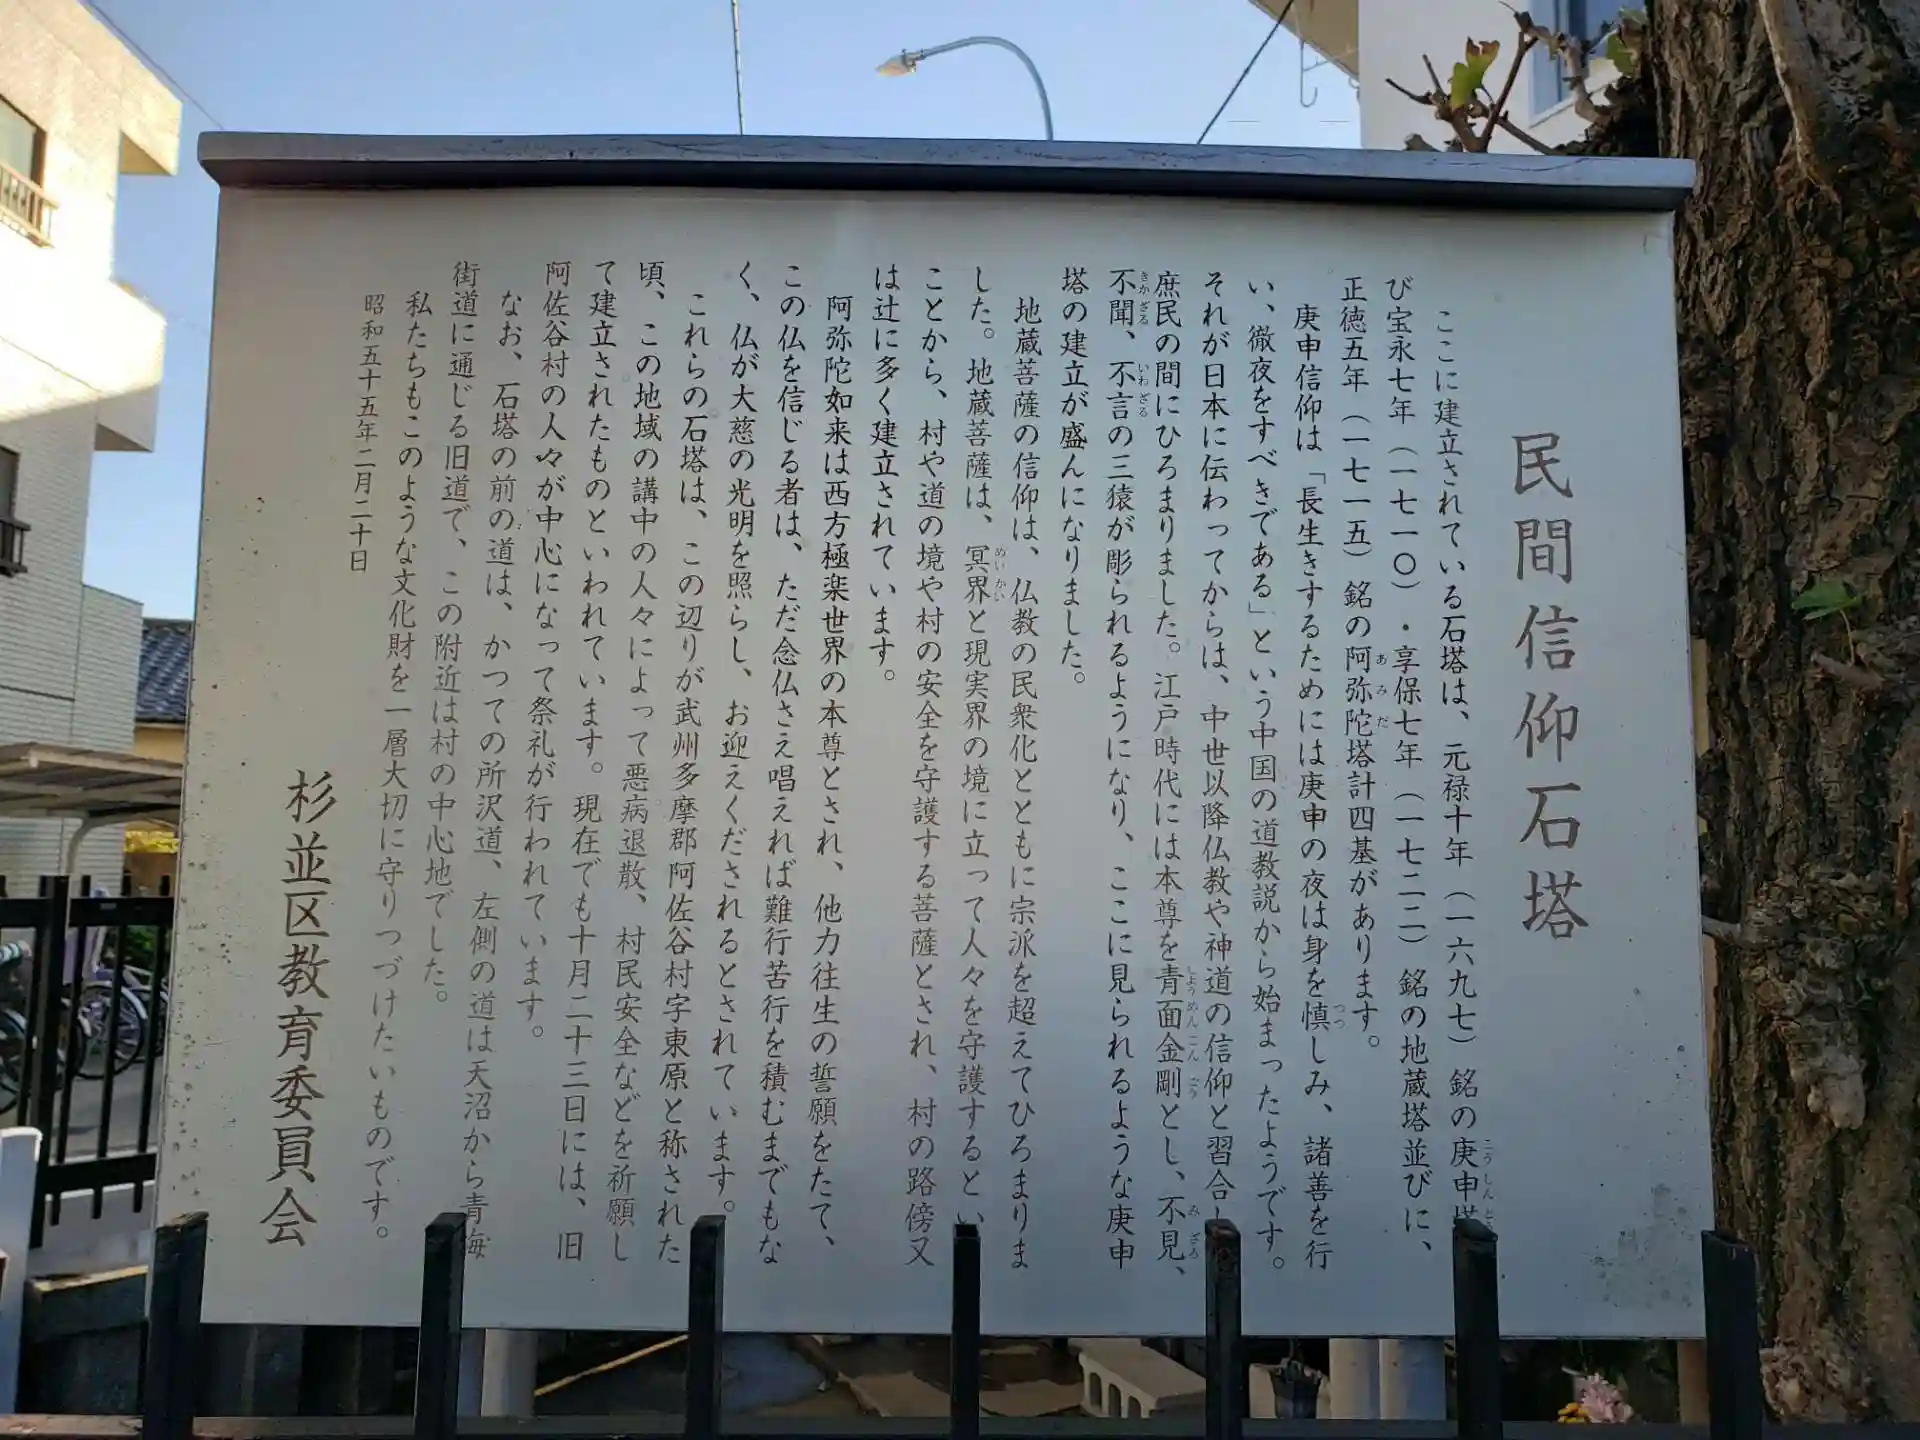 民間信仰石塔
ここに建立されている石塔は、元禄十年（一六九七）銘の庚申塔
び宝永七年（一七一〇）・享保七年（一七二二）銘の地蔵塔並びに、
正徳五年（一七一五）銘の阿弥陀塔計四基があります。
庚申信仰は「長生きするためには庚申の夜は身を慎しみ、諸善を行
い、徹夜をすべきである」という中国の道教説から始まったようです。
それが日本に伝わってからは、中世以降仏教や神道の信仰と習合し
庶民の間にひろまりました。江戸時代には本尊を青面金剛とし、不見、
不聞、不言の三猿が彫られるようになり、ここに見られるような庚申
塔の建立が盛んになりました。
地蔵菩薩の信仰は、仏教の民衆化とともに宗派を超えてひろまりま
した。地蔵菩薩は、冥界と現実界の境に立って人々を守護するとい
ことから、村や道の境や村の安全を守護する菩薩とされ、村の路傍又
は辻に多く建立されています。
阿弥陀如来は西方極楽世界の本尊とされ、他力往生の誓願をたて、
この仏を信じる者は、ただ念仏さえ唱えれば難行苦行を積むまでもな
く、仏が大慈の光明を照らし、お迎えくださるとされています。
これらの石塔は、この辺りが武州多摩郡阿佐谷村字東原と称された
頃、この地域の講中の人々によって悪病退散、村民安全などを祈願し
て建立されたものといわれています。現在でも十月二十三日には、旧
阿佐谷村の人々が中心になって祭礼が行われています。
なお、石塔の前の道は、かつての所沢道、左側の道は天沼から青梅
街道に通じる旧道で、この附近は村の中心地でした。
私たちもこのような文化財を一層大切に守りつづけたいものです。
昭和五十五年二月二十日
杉並区教育委員会